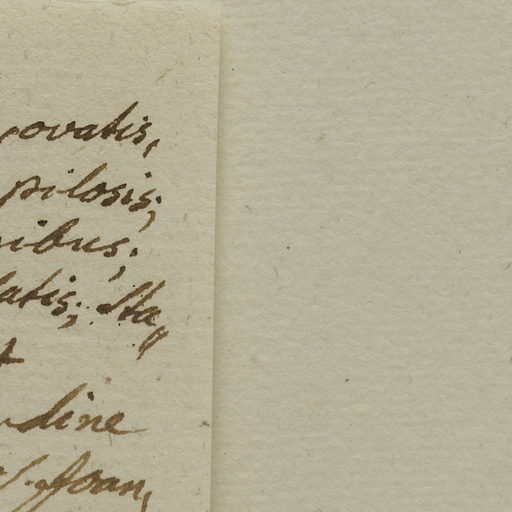 ovatis,
pilosis;
ibus;
latis; Sta„
t
dine
Joan,